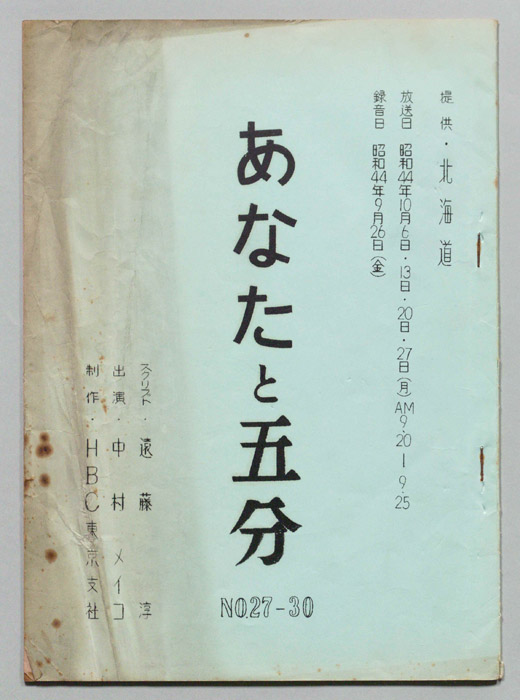 提供・北海道
放送日 昭和44年10月6日・13日・20日・27日(月)AM9.20ー9.25
録音日 昭和44年9月26日(金)
あなたと五分
NO.27-30
スクリプト・遠藤淳
出演・中村メイコ
制作・HBC東京支社